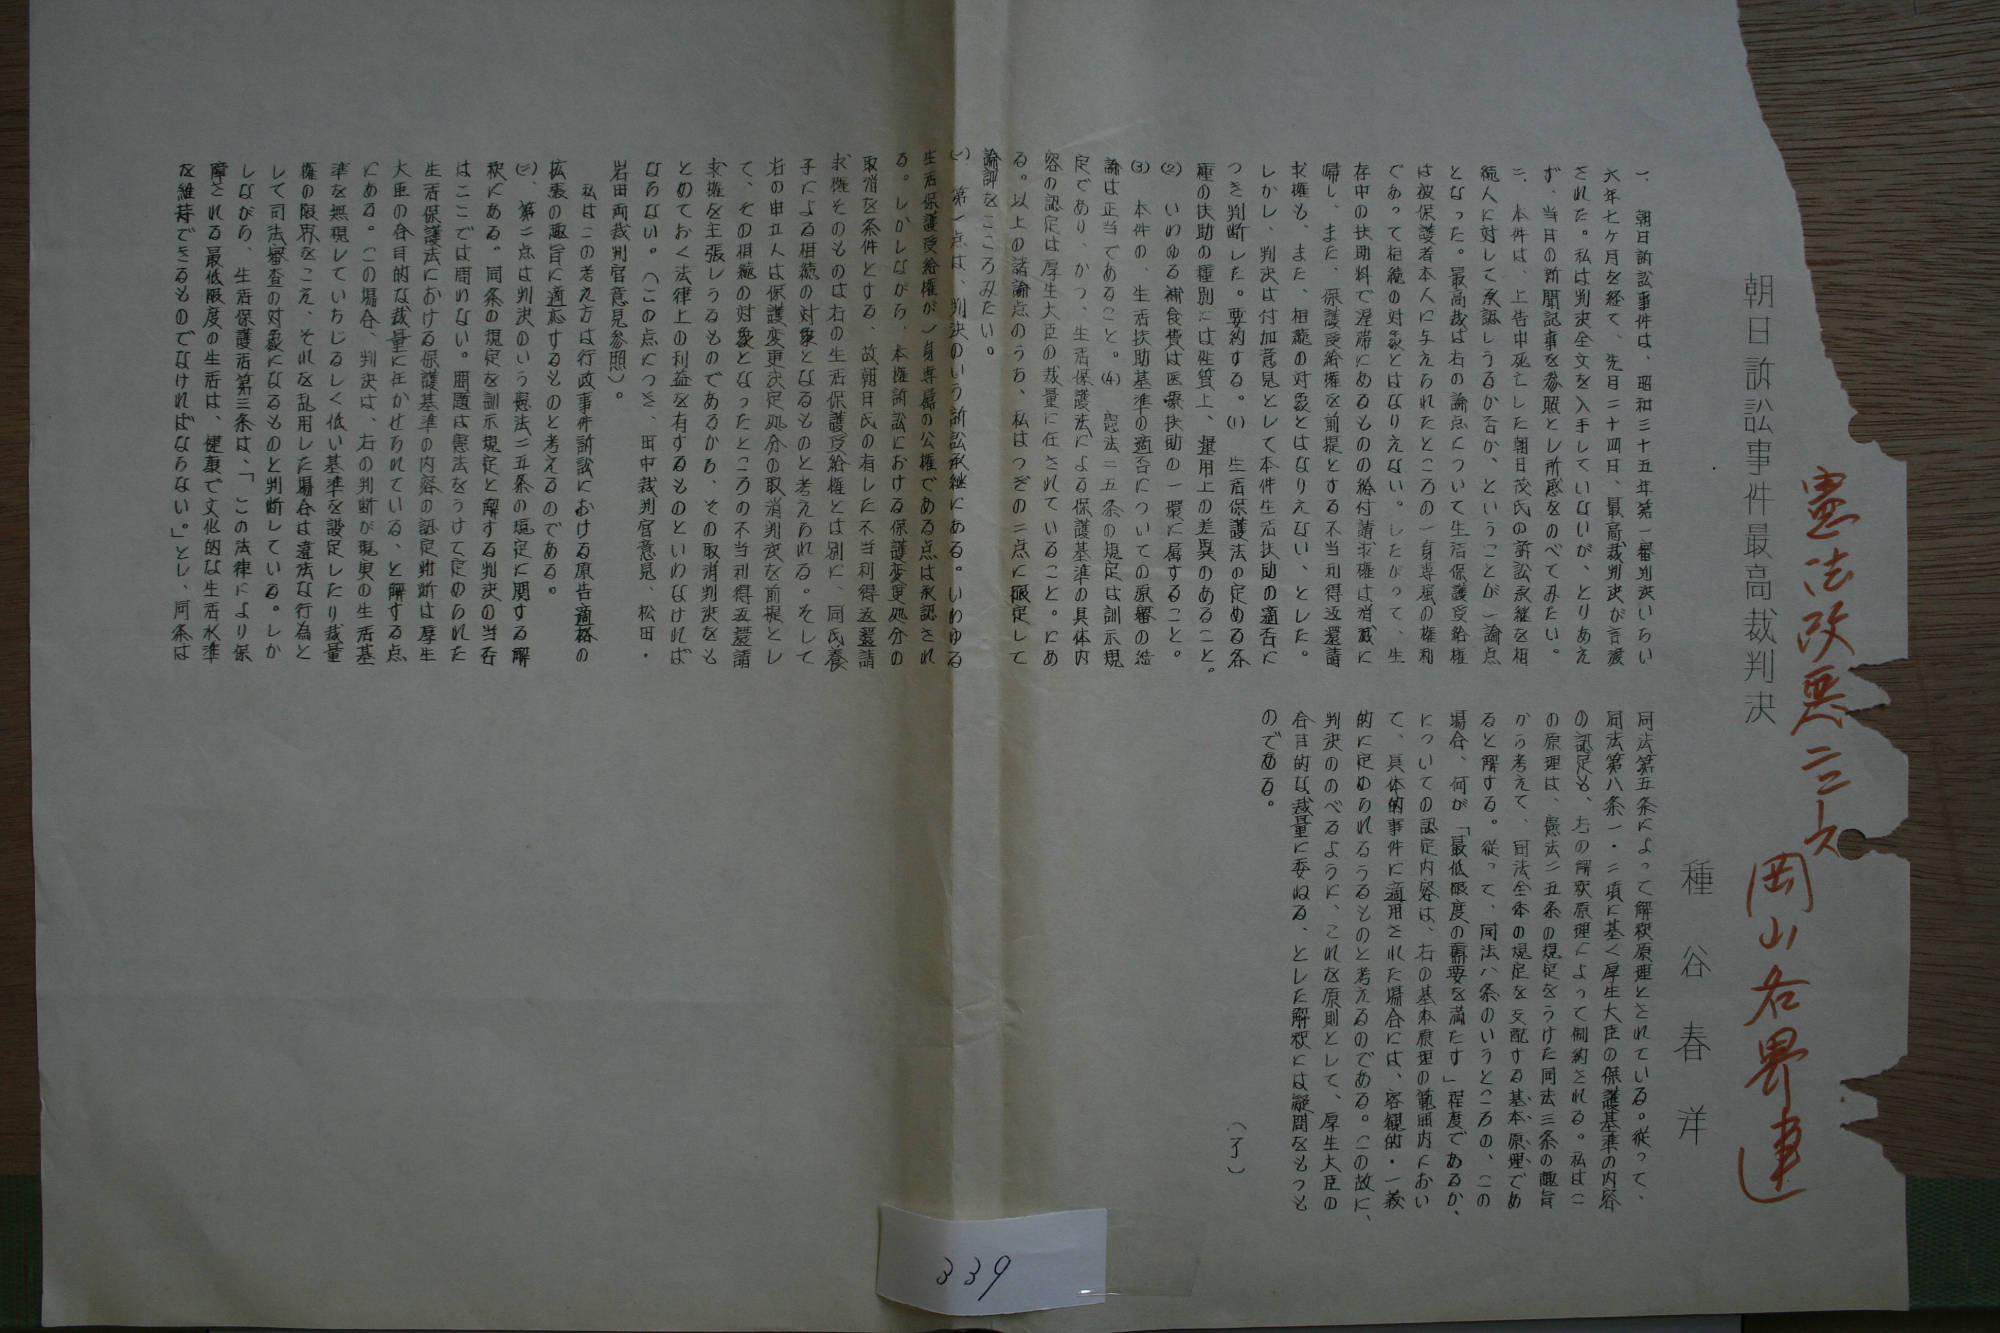 憲法改悪ニュース
岡山各界連
朝日訴訟事件最高裁判決
種谷春洋
一、朝日訴訟事件は、昭和三十五年第一審判決いらい
六年七ヶ月を経て、先月二十四日、最高裁判決が言渡
された。私は判決全文を入手していないが、とりあえ
ず、当日の新聞記事を参照とし所感をのべてみたい。
二、本件は、上告中死亡した朝日茂氏の訴訟承継を相
続人に対して承認しうるか否か、ということが一論点
となった。最高裁は右の論点について生活保護受給権
は被保護者本人に与えられたところの一身専属の権利
であって相続の対象とはなりえない。したがって、生
存中の扶助料で渥滞にあるものの給付請求権は消滅に
帰し、また、保護受給権を前提とする不当利得返還請
求権も、また、相続の対象とはなりえない、とした。
しかし、判決は付加意見として本件生活扶助の適否に
つき判断した。要約する。(1) 生活保護法の定める各
種の扶助の種別には性質上、運用上の差異のあること。
(2) いわゆる補食費は医療扶助の一環に属すること。
(3) 本件の、生活扶助基準の適否についての原審の結
論は正当であること。(4) 憲法二五条の規定は訓示規
定であり、かつ、生活保護法による保護基準の具体内
容の認定は厚生大臣の裁量に任されていること。にあ
る。以上の諸論点のうち、私はつぎの二点に限定して
論評をこころみたい。
(一) 第一点は、判決のいう訴訟承継にある。いわゆる
生活保護受給権が一身専属の公権である点は承認され
る。しかしながら、本権訴訟における保護変更処分の
取消を条件とする、故朝日氏の有した不当利得返還請
求権そのものは右の生活保護受給権とは別に、同氏養
子による相続の対象となるものと考えられる。そして
右の申立人は保護変更決定処分の取消判決を前提とし
て、その相続の対象となったところの不当利得返還請
求権を主張しうるものであるから、その取消判決をも
とめておく法律上の利益を有するものといわなければ
ならない。(この点につき、田中裁判官意見、松田・
岩田両裁判官意見参照)。
私はこの考え方は行政事件訴訟における原告適格の
拡張の趣旨に適応するものと考えるのである。
(二)、第二点は判決のいう憲法二五条の規定に関する解
釈にある。同条の規定を訓示規定と解する判決の当否
はここでは問わない。問題は憲法をうけて定められた
生活保護法における保護基準の内容の認定判断は厚生
大臣の合目的な裁量に任かせられている、と解する点
にある。この場合、判決は、右の判断が現実の生活基
準を無視していちじるしく低い基準を設定したり裁量
権の限界をこえ、それを乱用した場合は違法な行為と
して司法審査の対象になるものと判断している。しか
しながら、生活保護活第三条は、「この法律により保
障される最低限度の生活は、健康で文化的な生活水準
を維持できるものでなければならない。」とし、同条は
同法第五条によって解釈原理とされている。従って、
同法第八条一・二項に基く厚生大臣の保護基準の内容
の認定も、右の解釈原理によって制約される。私はこ
の原理は、憲法二五条の規定をうけた同法三条の趣旨
から考えて、同法全体の規定を支配する基本原理であ
ると解する。従って、同法八条のいうところの、この
場合、何が「最低限度の需要を満たす」程度であるか、
についての認定内容は、右の基本原理の範囲内におい
て、具体的事件に適用された場合には、客観的・一義
的に定められるうるものと考えるのである。この故に、
判決ののべるように、これを原則として、厚生大臣の
合目的な裁量に委ねる、とした解釈には疑問をもつも
のである。
(了)
339